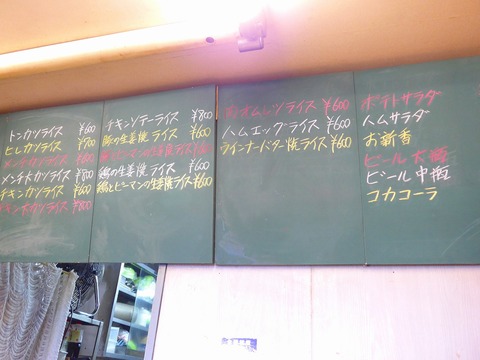 トンカツライス ¥600
ヒレカツライス ¥700
メンチカツライス ¥600
メンチ大カツライス ¥800
チキンカツライス ¥600
チキン大カツライス ¥800
チキンソテーライス ¥800
豚の生姜焼ライス ¥600
豚とピーマンの生姜焼ライス ¥600
鶏の生姜焼ライス ¥600
鶏とピーマンの生姜焼ライス ¥600
オムレツライス ¥600
ハムエッグライス ¥600
ウインナーバター焼ライス ¥600
ポテトサラダ
ハムサラダ
お新香
ビール大瓶
ビール中瓶
コカコーラ